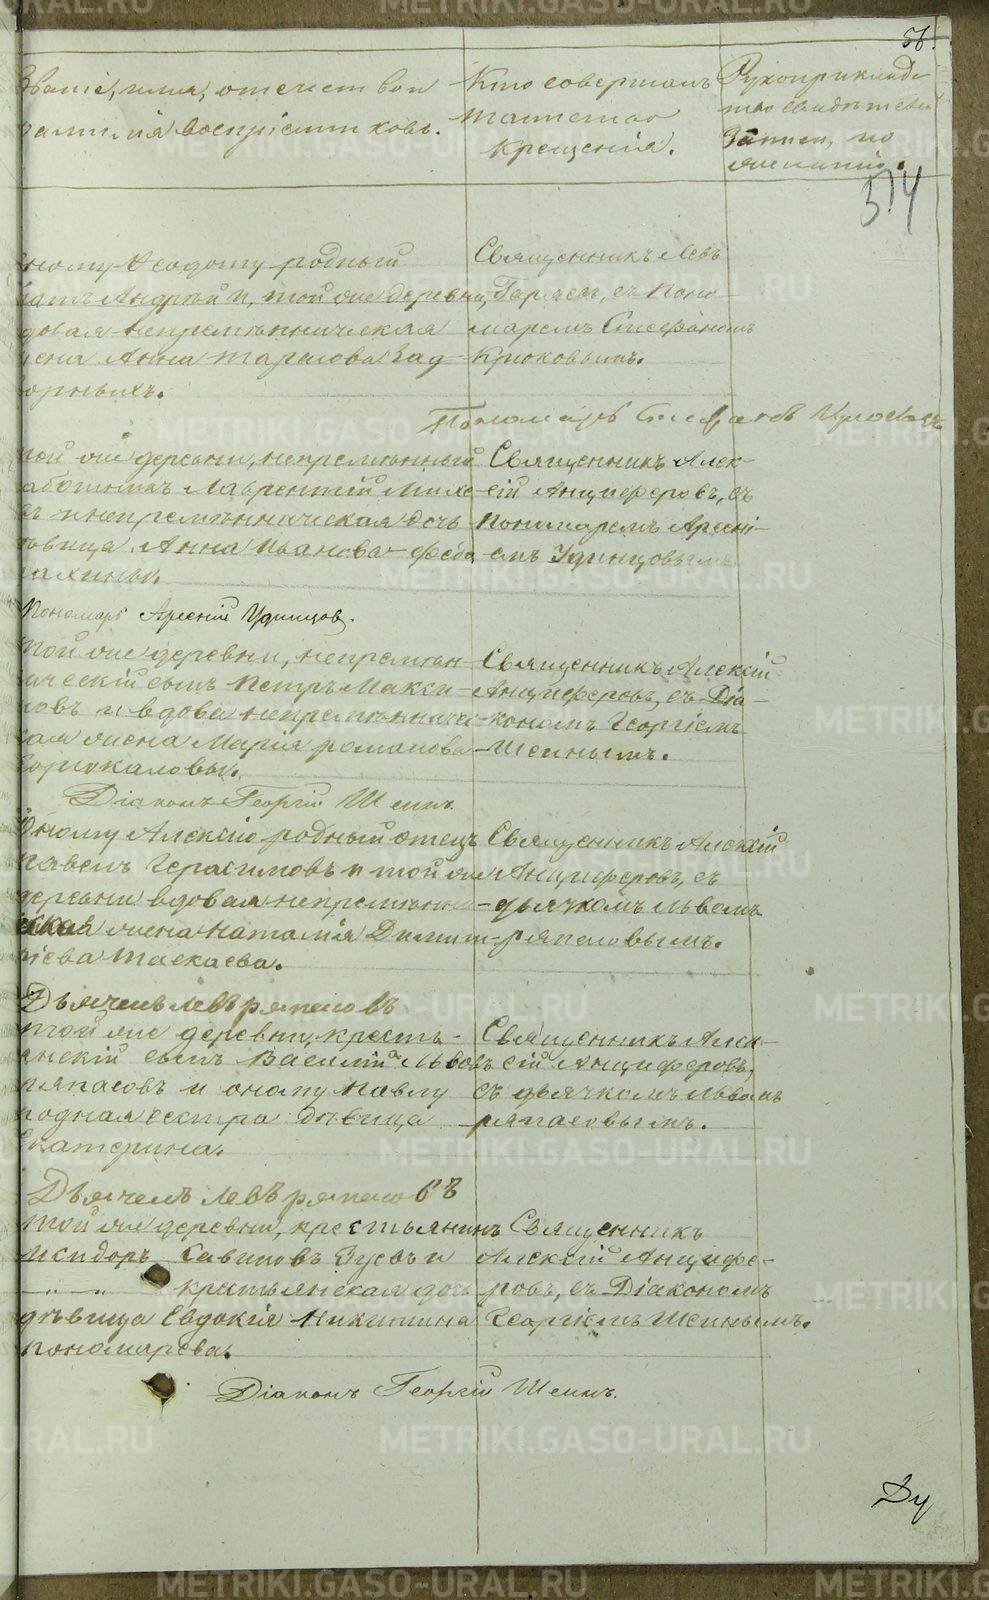 56.
Званіе, имя, отечество и
фамилія воспріемниковъ.
Кто совершалъ
таинство
крещенія.
Рукоприклад
тво свидѣтелей
записи, по
желанію.
514
родный
Андрей и, той же деревни,
вдовая непремѣнническая
жена Анна Тарасова Зад
орныхъ.
Священникъ Левъ
Гаряевъ, съ поно-
маремъ Стефаномъ
Крюковымъ.
Пономарь Стефанъ Крюковъ
той же деревни, непремѣнный
работникъ Лаврентій
и непремѣнническая дочь
девица Анна Иванова
Священникъ Алек-
сій Анциферовъ, съ
пономаремъ Арсені-
емъ Удинцовымъ
Пономарь Арсеній Удинцов.
той же деревни, непремѣн-
ническій сынъ Петръ Макси-
мовъ и вдова непремѣнниче-
ская жена Марія Романова
Священникъ Алексій
Анциферовъ, съ Діа-
кономъ Георгіемъ
Шеинымъ.
Діаконъ Георгій Шеинъ.
Оному Алексію родный отецъ
Павелъ Герасимовъ и той же
деревни вдовая непремѣнни-
ческая жена Наталія Димит-
ріева Таскаева.
Священникъ Алексій
Анциферовъ, съ
дьячкомъ Львомъ
Ряпасовымъ.
Дьячекъ Левъ Ряпасовъ
той же деревни, кресть-
янскій сынъ Василій Львовъ
Ряпасовъ и оному Павлу
родная сестра девица
Екатерина.
Священникъ Алек-
сій Анциферовъ,
съ дьячкомъ Львомъ
Ряпасовымъ.
Дьячекъ Левъ Ряпасовъ
той же деревни, крестьянинъ
Исидоръ Савиновъ Зуевъ и
" " крестьянская дочь
дѣвица Евдокія Никитина
Пономарева.
Священникъ
Алексій Анцифе-
ровъ, съ Діакономъ
Георгіемъ Шеинымъ.
Діаконъ Георгій Шеинъ.
Ду
METRIKI.GASO-URAL.RU